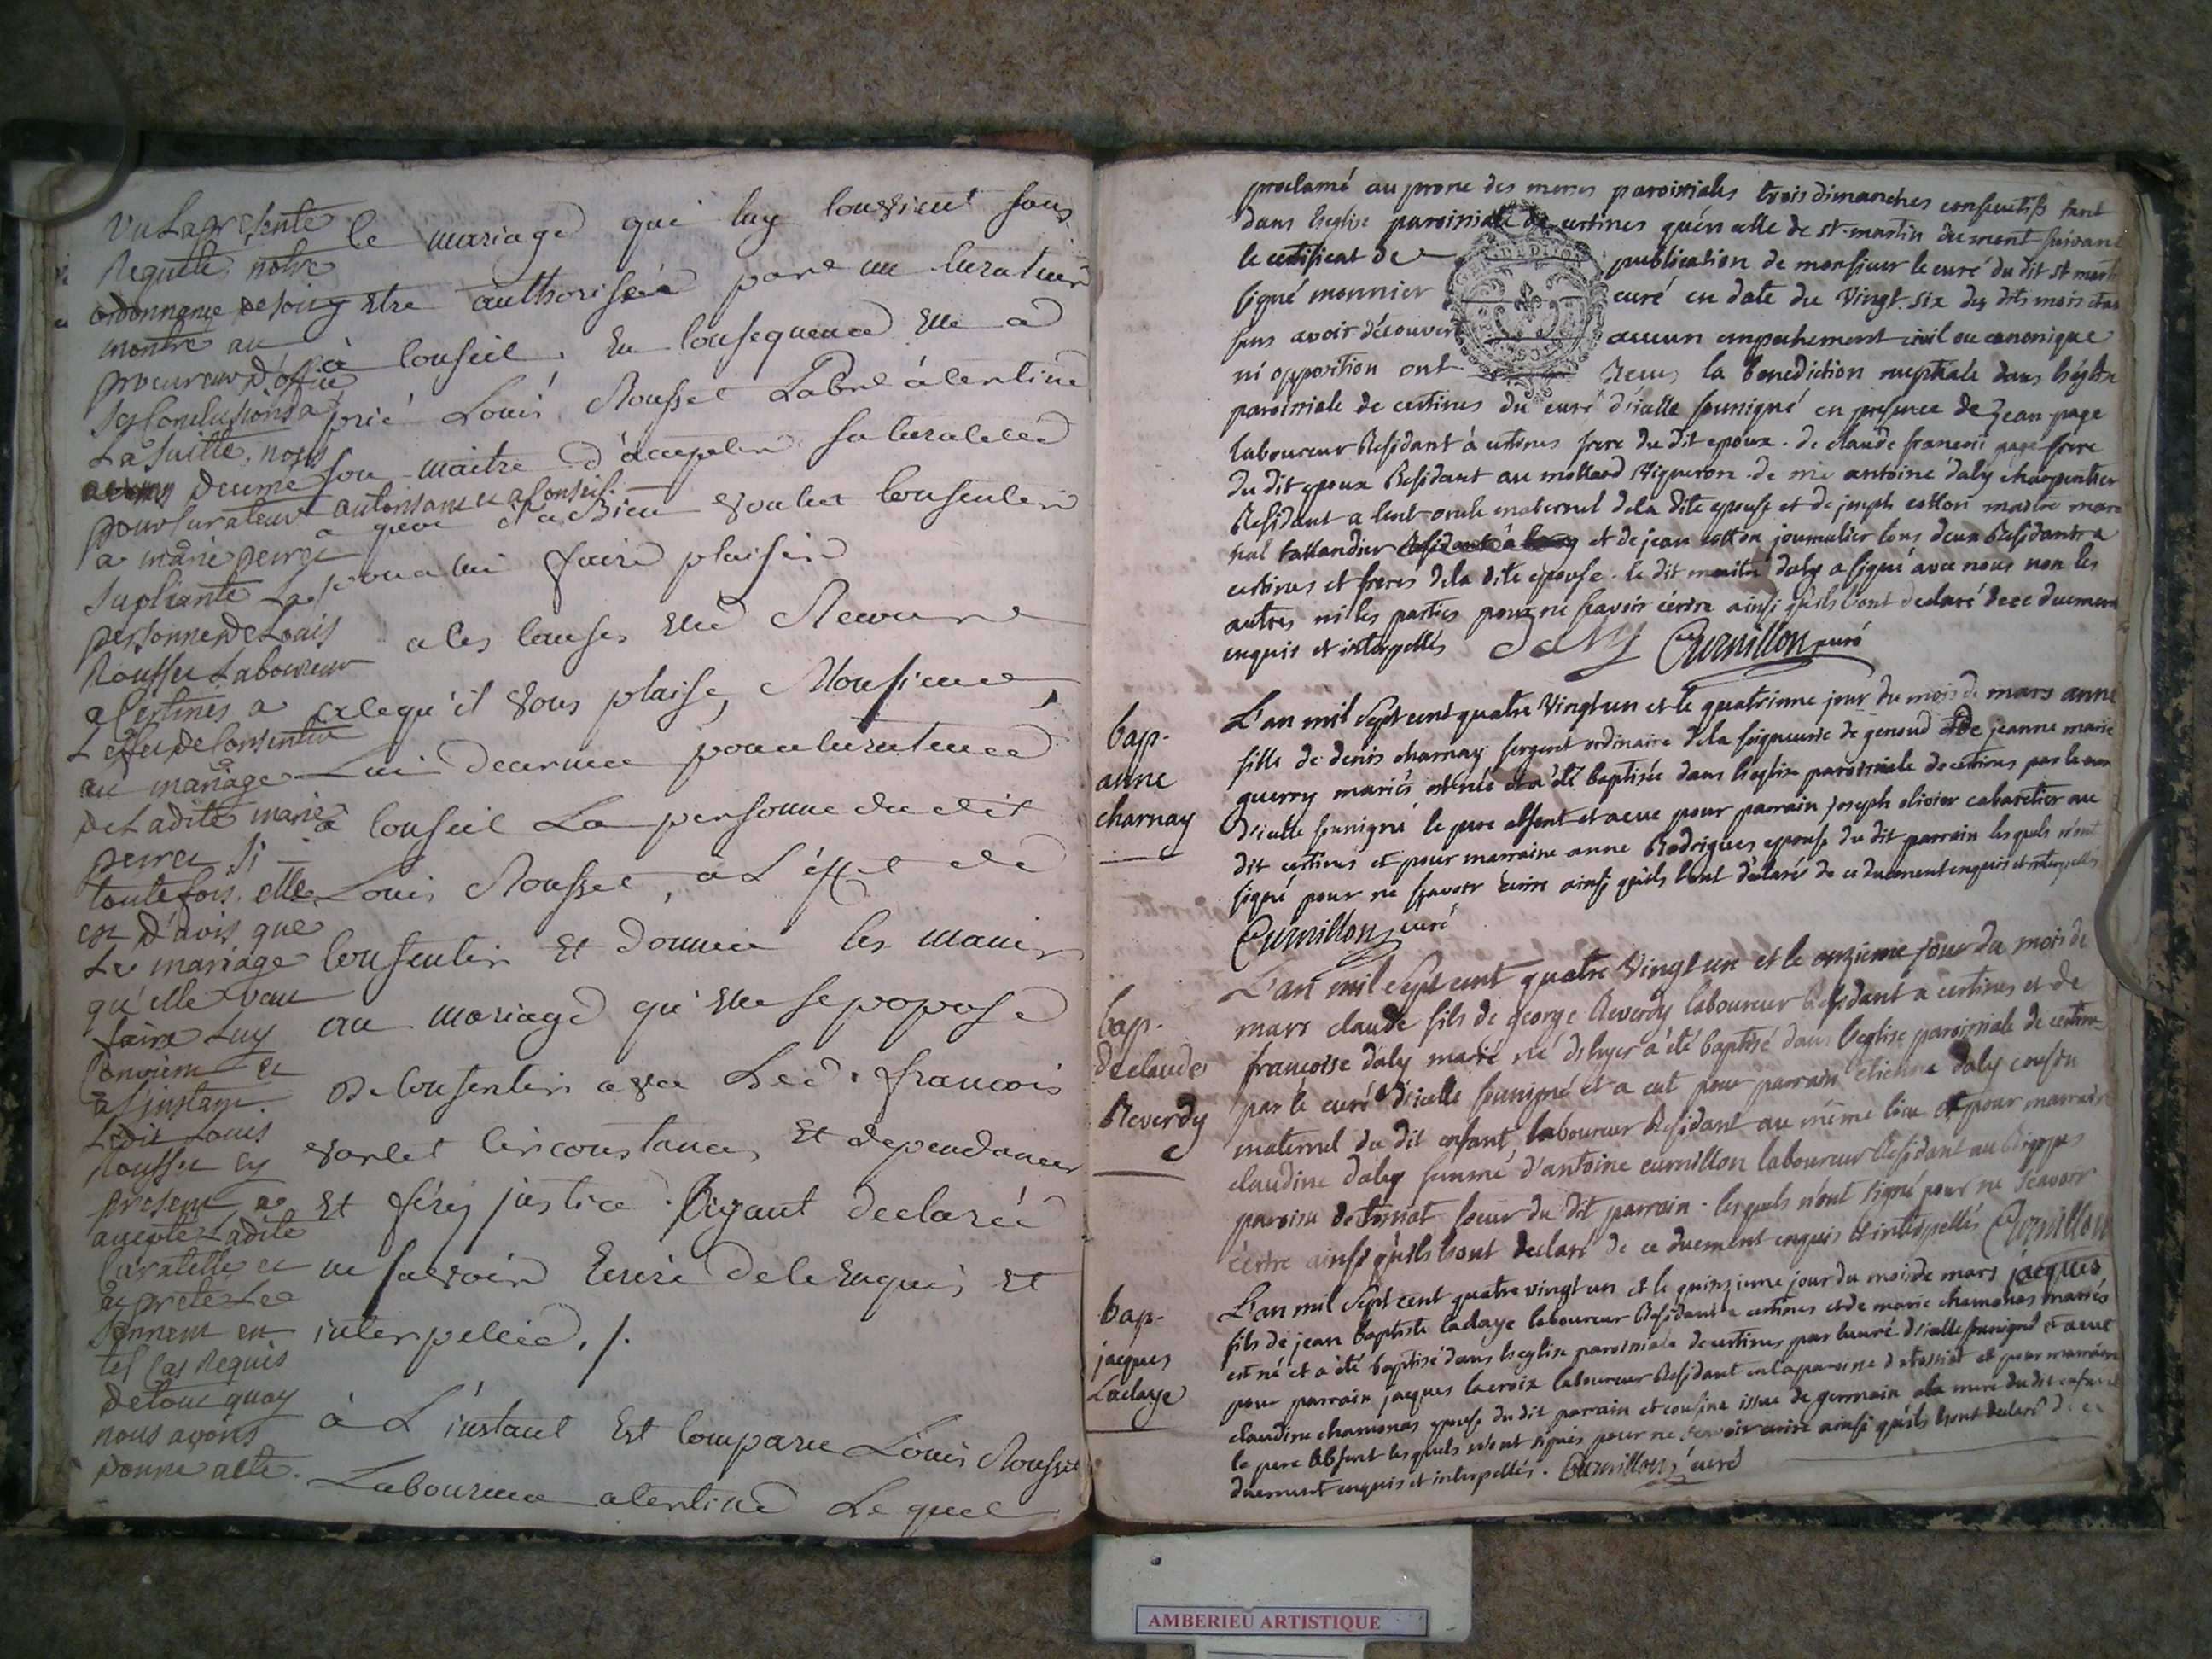 Vu La presente
Requette, notre
ordonnance de soit
montré au
procureur d'office
ses Conclusions a
La suitte, nous
avons decerné
pour Curateur autorisant et a Conseil
a marie perret
Supliante La
personne de Louis
Rousset Laboureur
a Certines a
L'effet de Consentir
au mariage
de Ladite marie
perret si
toutefois elle
est d'avis que
Le mariage
qu'elle veut
faire Luy
Convient et
a L'instant
Ledit Louis
Rousset cy
present a
accepté Ladite
Curatelle et
a preté Le
serment en
tel Cas Requis
de tout quoy
nous avons
donné acte.
le mariage qui luy Convient sans
Etre authorisée par un Curateur
à Conseil. En Consequence Elle a
prié Louis Rousset Labr à Certine
son maitre d'accepter sa Curatelle
a quoi il a Bien voulut Consentir
pour lui faire plaisir
a Ces Causes Elle Recourre
a ce qu'il vous plaise, Monsieur,
Lui decerner pour Curateur
à Conseil La personne du dit
Louis Rousset, à L'effet de
Consentir Et donner les mains
au mariage qu'Elle se propose
De Consentir avec Led. francois
varlet Circonstances Et dependances
Et ferez justice. Ayant declarée
ne savoir Ecrire de le Enquis Et
interpellée. /.
à L'instant Est Comparu Louis Rousset
Laboureur a Certine Le quel
proclamé au prone des messes paroissiales trois dimanches consecutifs tant
dans l'eglise paroissiale de certines qu'en celle de st martin du mont suivant
le certificat de publication de monsieur le curé du dit st mart
signé monnier curé en date du Vingt six des dits mois et an
sans avoir découvert aucun empechement civil ou canonique
ni opposition ont Recus la benediction nuptiale dans l'eglise
paroissiale de certines du curé d'icelle soussigné en presence de Jean page
laboureur Residant à certines frere du dit epoux. de claude francois page frere
du dit epoux Residant au mollard Vigneron. de me antoine daly charpentier
Residant a lent oncle maternel de la dite epouse et de joseph cotton maitre mare
chal tallandier et de jean cotton journalier tous deux Residants a
certines et freres de la dite epouse. le dit maitre daly a signé avec nous non les
autres ni les parties pour ne scavoir écrire ainsi qu'ils l'ont declaré de ce duement
enquis et interpellés Daly Curnillon curé
bap.
anne
charnay
L'an mil sept cent quatre Vingt un et le quatrieme jour du mois de mars anne
fille de denis charnay sergent ordinaire de la seigneurie de genoud et de jeanne marie
guerry mariés est née et a été baptisée dans l'eglise paroissiale de certines par le curé
d'icelle soussigné le pere absent et a eue pour parrain joseph olivier cabaretier au
dit certines et pour marraine anne Rodrigues epouse du dit parrain lesquels n'ont
signé pour ne scavoir Ecrire ainsi qu'ils l'ont déclaré de ce duement enquis et interpellés
Curnillon curé
bap.
de claude
Reverdy
L'an mil sept cent quatre Vingt un et le onzieme jour du mois de
mars claude fils de george Reverdy laboureur Residant a certines et de
francoise daly marié né d'hyer a été baptisé dans l'eglise paroissiale de certines
par le curé d'icelle soussigné et a eut pour parrain etienne daly cousin
maternel du dit enfant, laboureur Residant au même lieu et pour marraine
claudine daly femme d'antoine curnillon laboureur Residant au
paroisse de tossiat soeur du dit parrain. lesquels n'ont signé pour ne scavoir
écrire ainsi qu'ils l'ont declaré de ce duement enquis et interpellés Curnillon
bap.
jacques
Ladaye
L'an mil sept cent quatre vingt un et le quinzieme jour du mois de mars jacques
fils de jean baptiste ladaye laboureur Residant a certines et de marie chamonas mariés
est né et a été baptisé dans l'eglise paroissiale de certines par le curé d'icelle soussigné et a eut
pour parrain jacques lacroix laboureur Residant en la paroisse de tossiat et pour marraine
claudine chamonas epouse du dit parrain et cousine issue de germain a la mere du dit enfant
le pere absent lesquels n'ont signés pour ne scavoir ecrire ainsi qu'ils l'ont declaré de ce
duement enquis et interpellés. Curnillon curé
AMBERIEU ARTISTIQUE